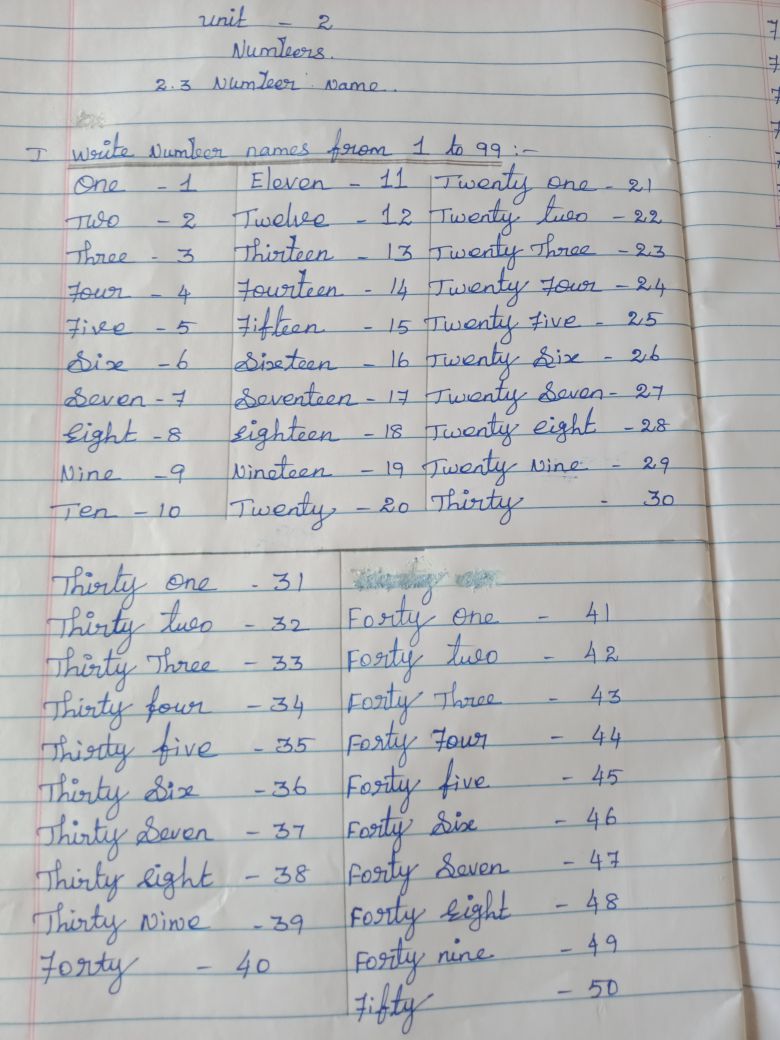 Unit - 2
Numbers.
2.3 Number Name.
I Write Number names from 1 to 99 :-
One - 1 Eleven - 11 Twenty one - 21
Two - 2 Twelve - 12 Twenty two - 22
Three - 3 Thirteen - 13 Twenty Three - 23
Four - 4 Fourteen - 14 Twenty Four - 24
Five - 5 Fifteen - 15 Twenty Five - 25
Six - 6 Sixteen - 16 Twenty Six - 26
Seven - 7 Seventeen - 17 Twenty Seven - 27
Eight - 8 Eighteen - 18 Twenty eight - 28
Nine - 9 Nineteen - 19 Twenty Nine - 29
Ten - 10 Twenty - 20 Thirty - 30
Thirty One - 31
Thirty two - 32 Forty One - 41
Thirty Three - 33 Forty two - 42
Thirty four - 34 Forty Three - 43
Thirty five - 35 Forty Four - 44
Thirty Six - 36 Forty five - 45
Thirty Seven - 37 Forty Six - 46
Thirty eight - 38 Forty Seven - 47
Thirty Nine - 39 Forty Eight - 48
Forty - 40 Forty nine - 49
Fifty - 50